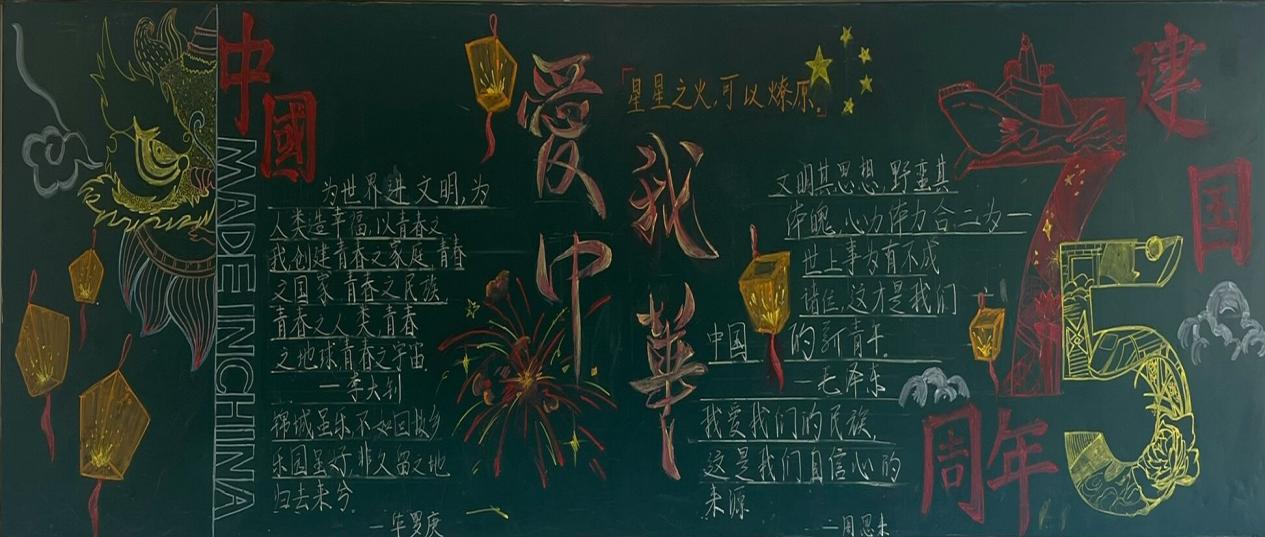 中國
MADE IN CHINA
爱我中华
「星星之火,可以燎原」
为世界进文明,为
人类造幸福,以青春之
我,创建青春之家庭,青春
之国家,青春之民族,
青春之人类,青春
之地球,青春之宇宙
—李大钊
锦城虽乐,不如回故乡
乐园虽好,非久留之地
归去来兮
—华罗庚
文明其思想,野蛮其
体魄,心力体力合二为一
世上事为有不成
诸位,这才是我们
中国的新青年
—毛泽东
我爱我们的民族,
这是我们自信心的
来源
—周恩来
建国
75
周年